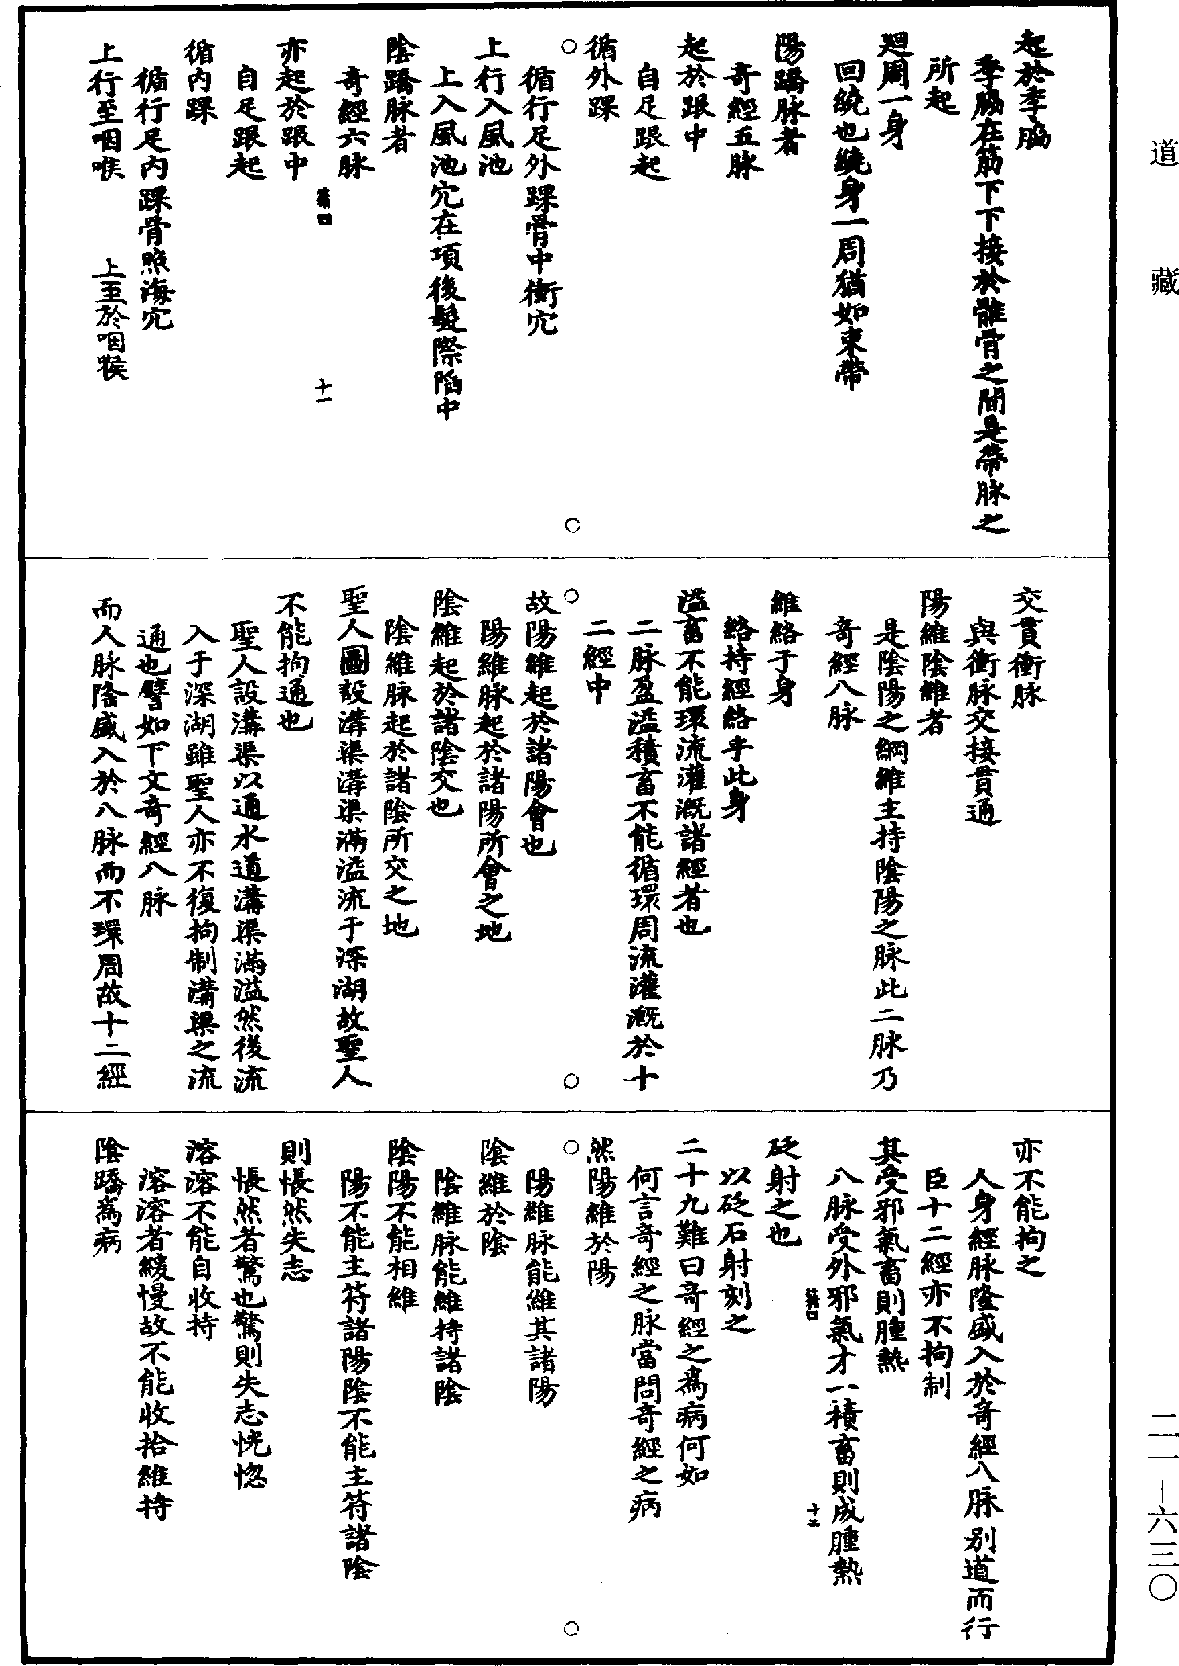 道藏
起於季脇
季脇在筋下下接於髓骨之間是帶脉之
所起
廻周一身
回繞也繞身一周猶如束帶
陽蹻脉者
奇經五脉
起於跟中
自足跟起
循外踝
循行足外踝骨中衝穴
上行入風池
上入風池穴在項後髮際陷中
陰蹻脉者
奇經六脉
十一
亦起於跟中
自足跟起
循內踝
循行足內踝骨照海穴
上行至咽喉
上至於咽喉
交貫衝脉
與衝脉交接貫通
陽維陰維者
是陰陽之綱維主持陰陽之脉此二脉乃
奇經八脉
維絡于身
絡持經絡乎此身
溢畜不能環流灌溉諸經者也
二脉盈溢積畜不能循環周流灌溉於十
二經中
故陽維起於諸陽會也
陽維脉起於諸陽所會之地
陰維起於諸陰交也
陰維脉起於諸陰所交之地
聖人圖設溝渠溝渠滿溢流于深湖故聖人
不能拘通也
聖人設溝渠以通水道溝渠滿溢然後流
入于深湖雖聖人亦不復拘制溝渠之流
通也譬如下文奇經八脉
而人脉隆盛入於八脉而不環周故十二經
亦不能拘之
人身經脉隆盛入於奇經八脉別道而行
臣十二經亦不拘制
其受邪氣畜則腫熱
八脉受外邪氣才一積畜則成腫熱
十二
砭射之也
以砭石射刻之
二十九難曰奇經之爲病何如
何言奇經之脉當問奇經之病
然陽維於陽
陽維脉能維其諸陽
陰維於陰
陰維脉能維持諸陰
陰陽不能相維
陽不能主符諸陽陰不能主符諸陰
則悵然失志
悵然者驚也驚則失志恍惚
溶溶不能自收持
溶溶者緩慢故不能收拾維持
陰蹻爲病
二一—六三〇